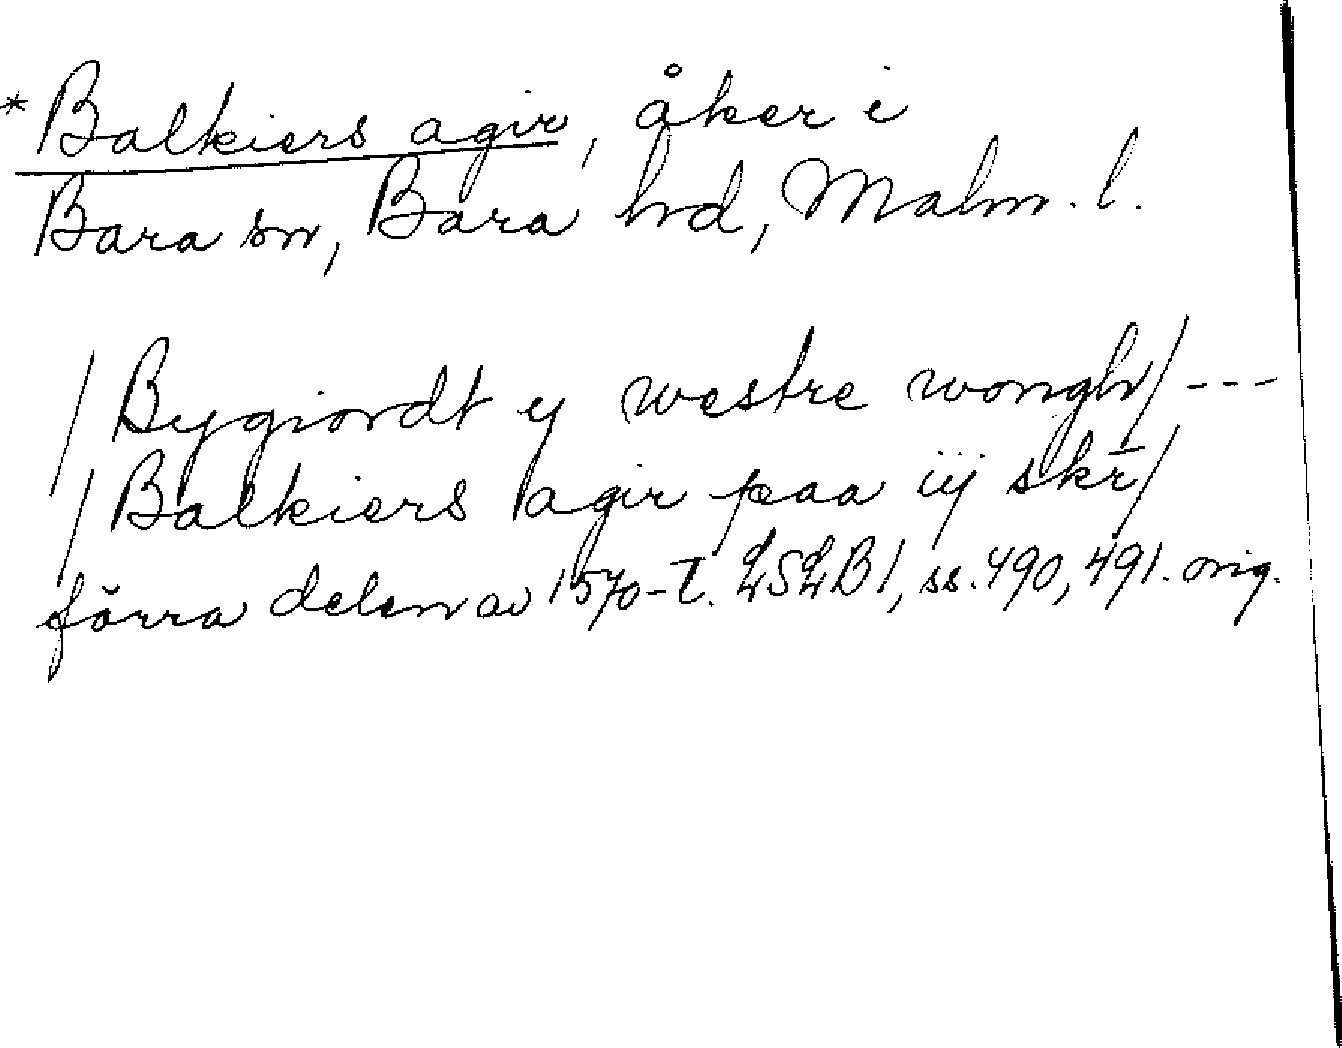 *Balkiers agir, åker i
Bara sn, Bara hd, Malm. l.
/Bygiordt y westre wongh/ ---
/Balkiers agir paa iij skr̄/
förra delen av 1570-t. LSLB1, ss. 490, 491. orig.